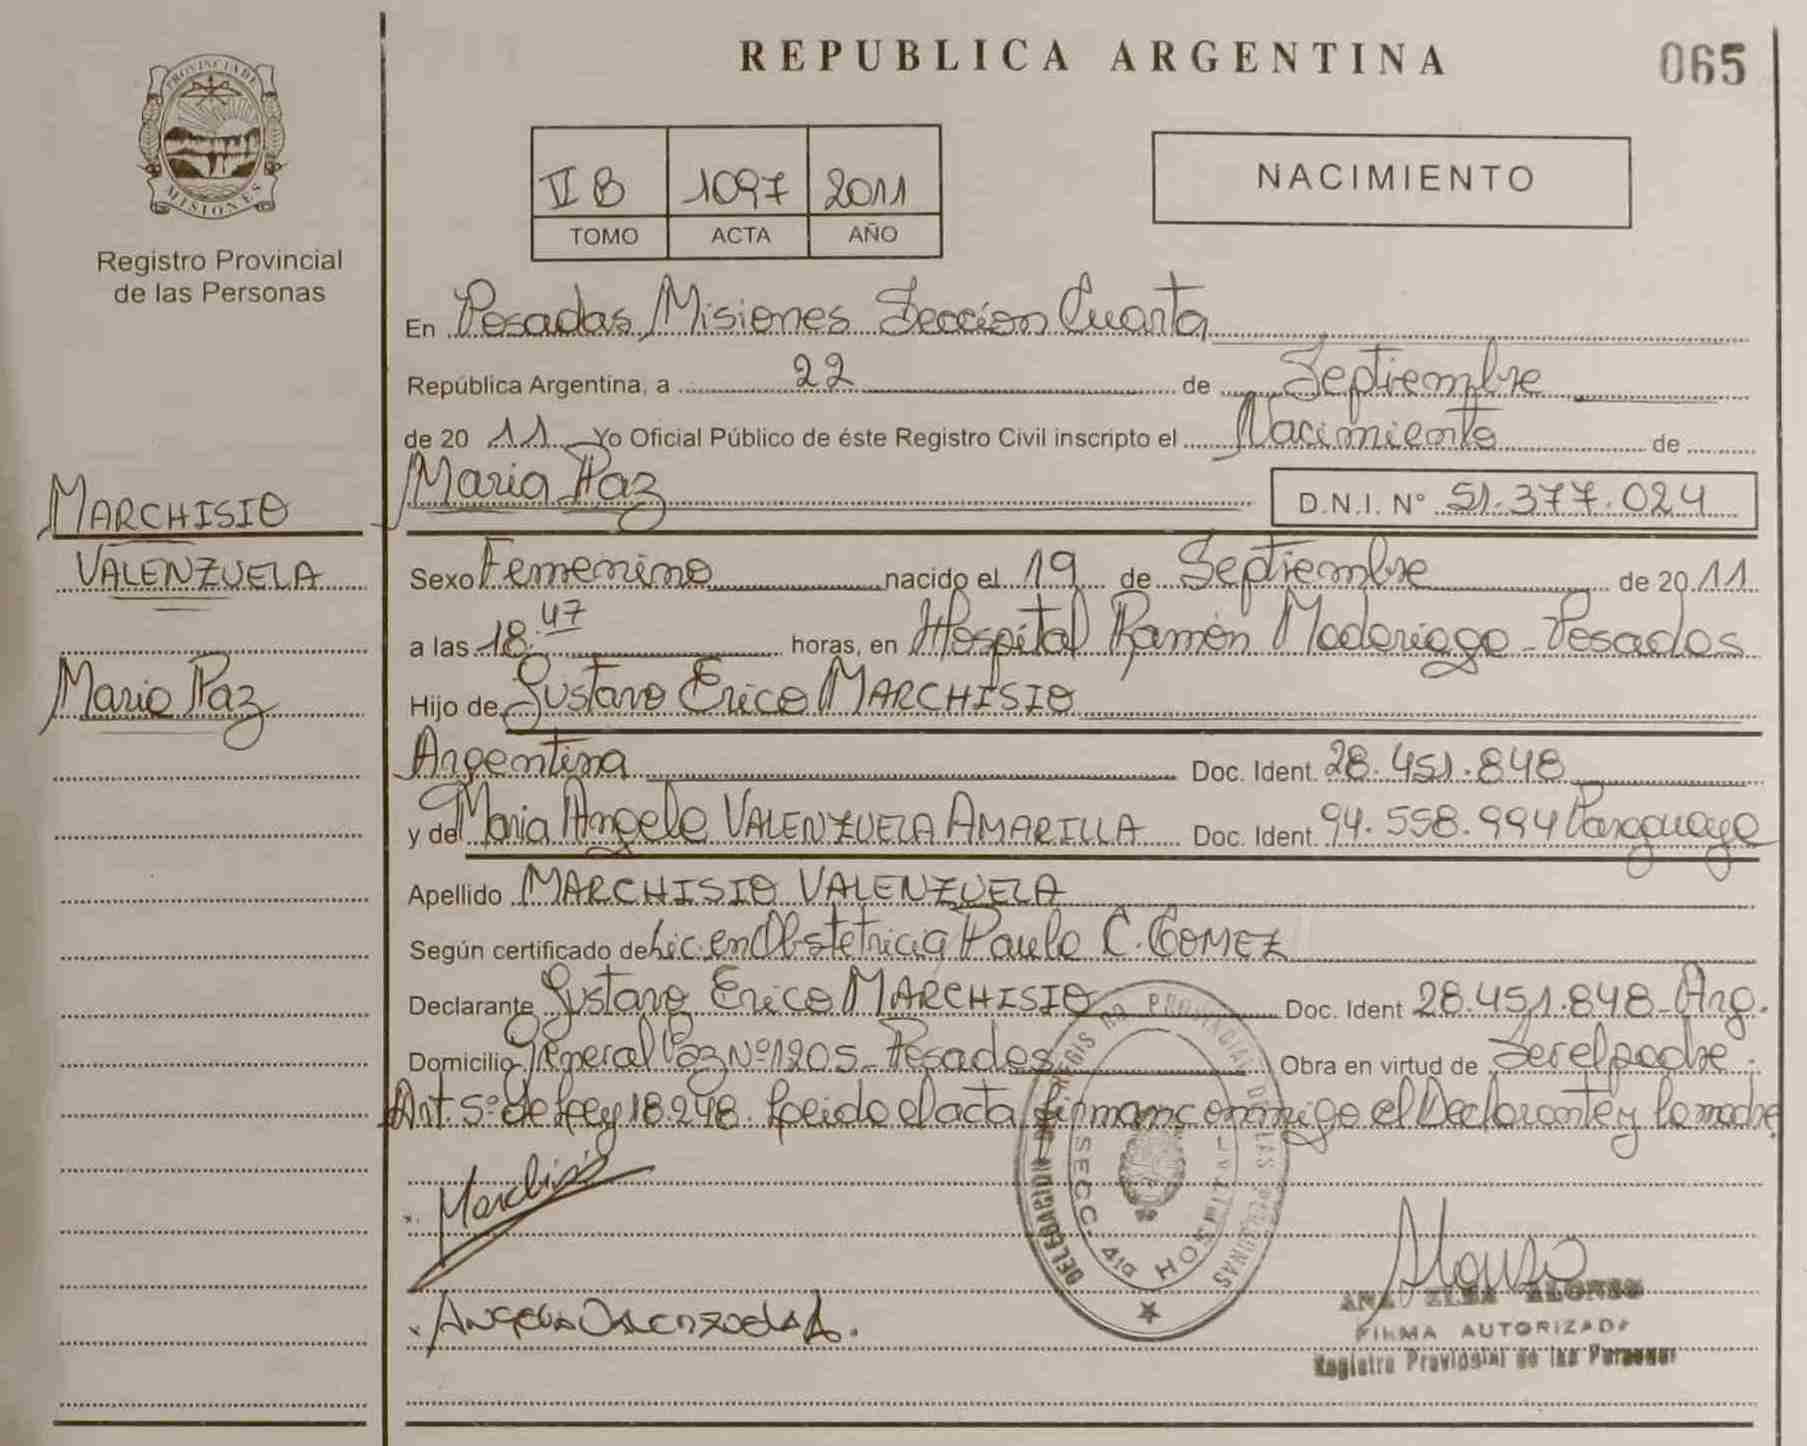 REPUBLICA ARGENTINA
065
PROVINCIA DE
MISIONES
Registro Provincial
de las Personas
II B 1097 2011
TOMO ACTA AÑO
NACIMIENTO
En Posadas Misiones Sección Cuarta
República Argentina, a 22 de Septiembre
de 2011 Yo Oficial Público de éste Registro Civil inscripto el Nacimiento de
Maria Paz D.N.I. N° 51.377.024
MARCHISIO
VALENZUELA
Maria Paz
Sexo Femenino nacido el 19 de Septiembre de 2011
a las 18:47 horas, en Hospital Ramón Madariaga - Posadas
Hijo de Gustavo Erico MARCHISIO
Argentina Doc. Ident. 28.451.848
y de Maria Angela VALENZUELA AMARILLA Doc. Ident. 94.558.994 Paraguaya
Apellido MARCHISIO VALENZUELA
Según certificado de Lic. en Obstetricia Paula C. GOMEZ
Declarante Gustavo Erico MARCHISIO Doc. Ident 28.451.848 - Arg.
Domicilio General Paz Nº 1205 - Posadas Obra en virtud de Ser el padre.
Art. 5º de Ley 18.248. Leida el acta firman conmigo el Declarante y la madre
Marchisio
DELEGACION REGISTRO PROVINCIAL DE LAS PERSONAS
SECC. 4ta HOSPITAL
Alonso
ANA ELBA ALONSO
FIRMA AUTORIZADA
Registro Provincial de las Personas
ANGELA VALENZUELA A.